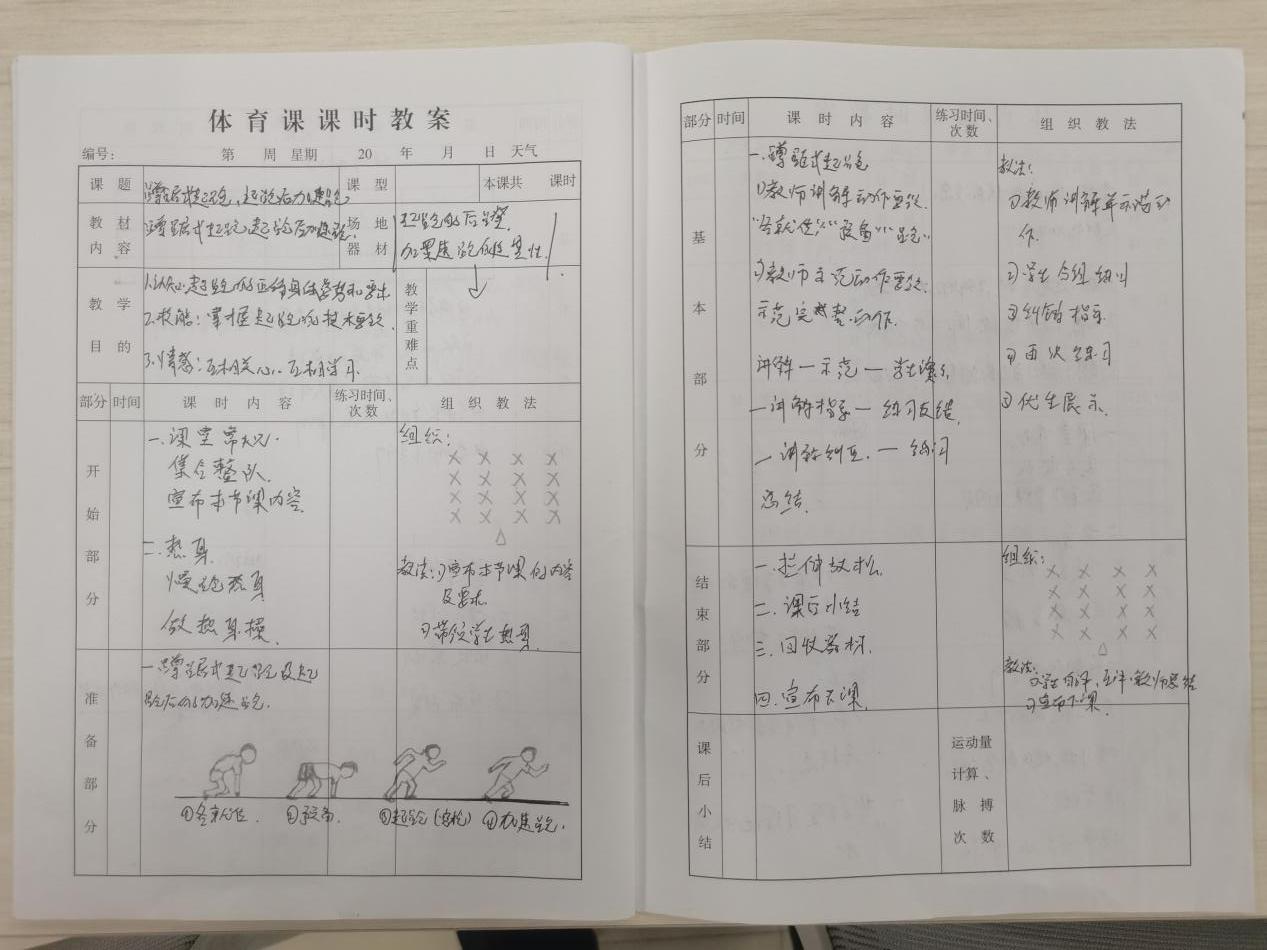 体育课课时教案
编号： 第 周 星期 20 年 月 日 天气
课题 蹲踞式起跑、起跑后加速跑 课型 本课共 课时
教材内容 蹲踞式起跑、起跑后加速跑 场地器材 起跑的后蹬，
加速跑的
教学目的 1.认知:起跑的正确身体姿势和要求
2.技能：掌握起跑的技术要领．
3.情感：互相关心、互相学习
教学重难点
部分 时间 课时内容 练习时间、次数 组织教法
开始部分
一、课堂常规．
集合整队．
宣布本节课内容．
二、热身．
慢跑热身
做热身操．
组织：
× × × ×
× × × ×
× × × ×
× × × ×
△
教法：①宣布本节课的内容
及要求
②带领学生热身．
准备部分
一、蹲踞式起跑及起
跑后的加速跑．
①各就位． ②预备． ③起跑（鸣枪） ④加速跑．
部分 时间 课时内容 练习时间、次数 组织教法
基本部分
一、蹲踞式起跑
①教师讲解动作要领．
“各就位”“预备”“跑”
②教师示范动作要领．
示范完整动作．
讲解—示范—学生练习
—讲解指导—练习总结．
—讲解纠正．—练习
总结．
教法：
①教师讲解并示范动
作．
②学生分组练习
③纠错指导
④再次练习
⑤优生展示．
结束部分
一、拉伸放松．
二、课后小结
三、回收器材．
四、宣布下课．
组织：
× × × ×
× × × ×
× × × ×
× × × ×
△
教法：
①学生自评、互评、教师总结
②宣布下课．
课后小结
运动量计算、脉搏次数